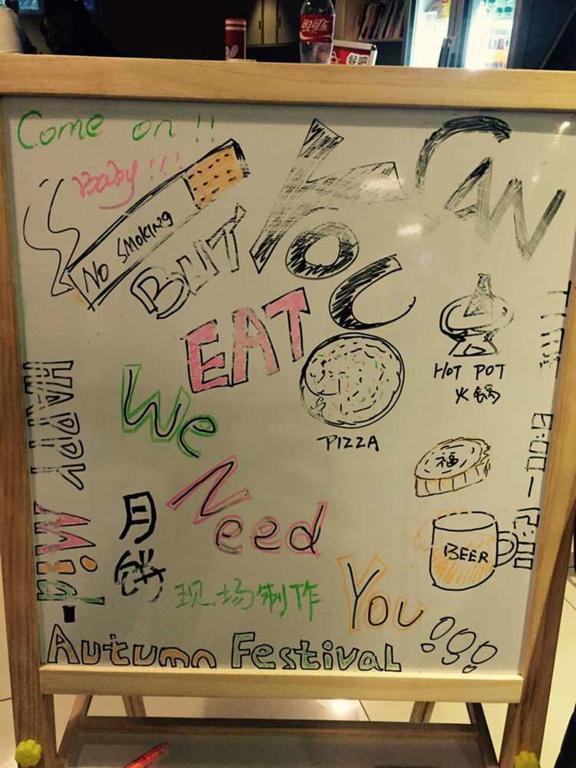 Come on !!
Baby !!!
No SMOKING
BUT YOU CAN
EAT
PIZZA
HOT POT
火锅
福
BEER
We
Need
You !!!
月饼
现场制作
HAPPY Mid-
Autumn Festival
TIME
可口可乐